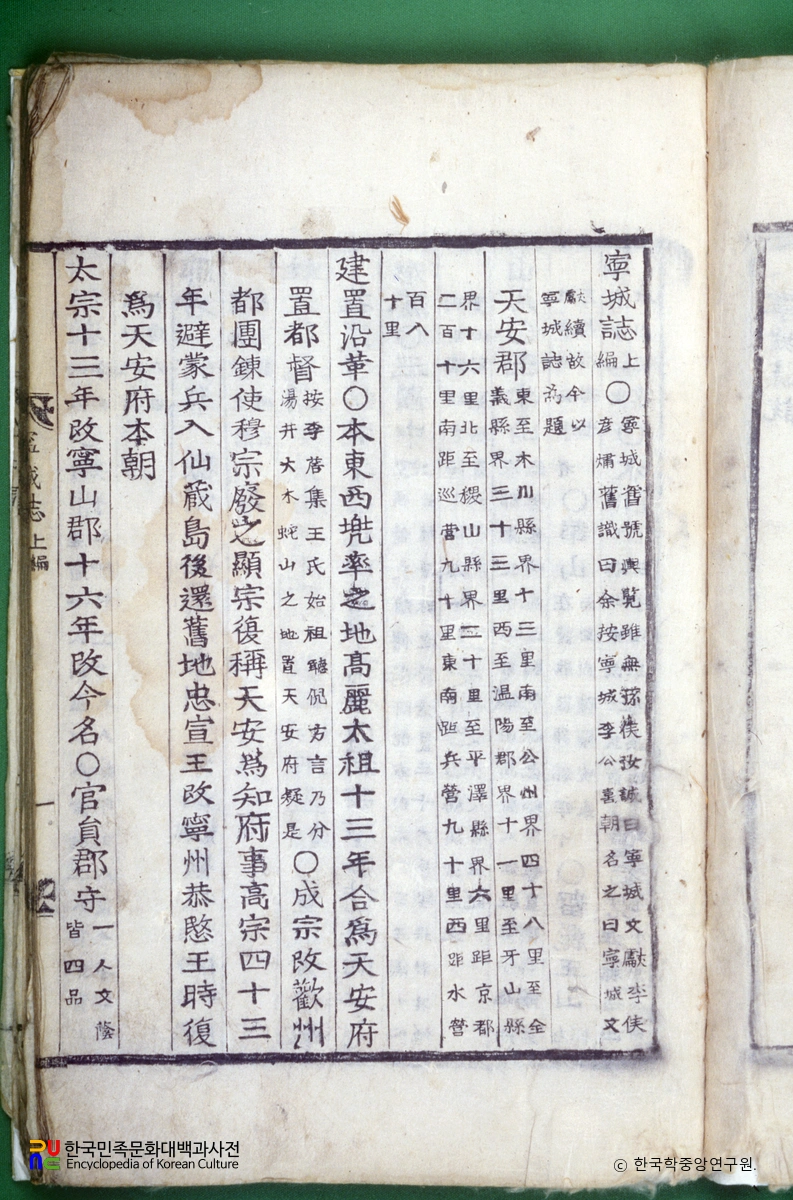 寧城誌上編○寧城舊號輿覧雖無攷誠曰寧城文獻李侯
彦舊識曰余按寧城李公朝名之曰寧城文
獻續故今以
寧城誌為題
天安郡東至木川縣界十三里南至公州界四十八里至全
義縣界三十三里西至温陽郡界十一里至牙山縣
界十六里北至稷山縣界二十里至平澤縣界六里距京都
二百十里南距巡營九十里東南距兵營九十里西距水營
百八
十里
建置沿革○本東西兠率之地高麗太祖十三年合爲天安府
置都督按李詹集王氏始祖聽倪方言乃分
湯井大木蛇山之地置天安府疑是○成宗改歡州
都團鍊使穆宗廢之顯宗復稱天安爲知府事高宗四十三
年避蒙兵入仙蔵島後還舊地忠宣王改寧州恭愍王時復
爲天安府本朝
太宗十三年改寧山郡十六年改今名○官員郡守一人文蔭
皆四品
寧城志上編
一
한국민족문화대백과사전
Encyclopedia of Korean Culture
ⓒ 한국학중앙연구원.